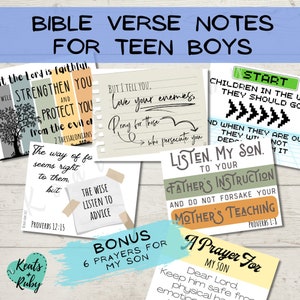 BIBLE VERSE NOTES
FOR TEEN BOYS
But the Lord is faithful,
WILL
STRENGTHEN YOU
AND
PROTECT YOU
from the evil one
2 THESSALONIANS
BUT I TELL YOU,
Love your enemies,
Pray for those
who persecute you
START
CHILDREN IN THE
THEY SHOULD GO
AND WHEN THEY ARE OLD
THEY WILL NOT
The way of fools
seems right
to them
but
THE WISE
LISTEN TO
ADVICE
PROVERBS 12:15
LISTEN, MY SON,
TO YOUR
FATHER'S INSTRUCTION
AND DO NOT FORSAKE YOUR
MOTHER'S TEACHING
PROVERBS 1:8
BONUS
6 PRAYERS FOR
MY SON
A Prayer For
MY SON
Dear Lord,
Keep him safe from
physical
Keats
Ruby